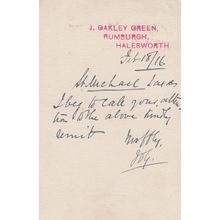 J. OAKLEY GREEN,
RUMBURGH,
HALESWORTH
Feb 18/16
St. Michael Taxes
I beg to call your atten
tion to the above kindly
remit